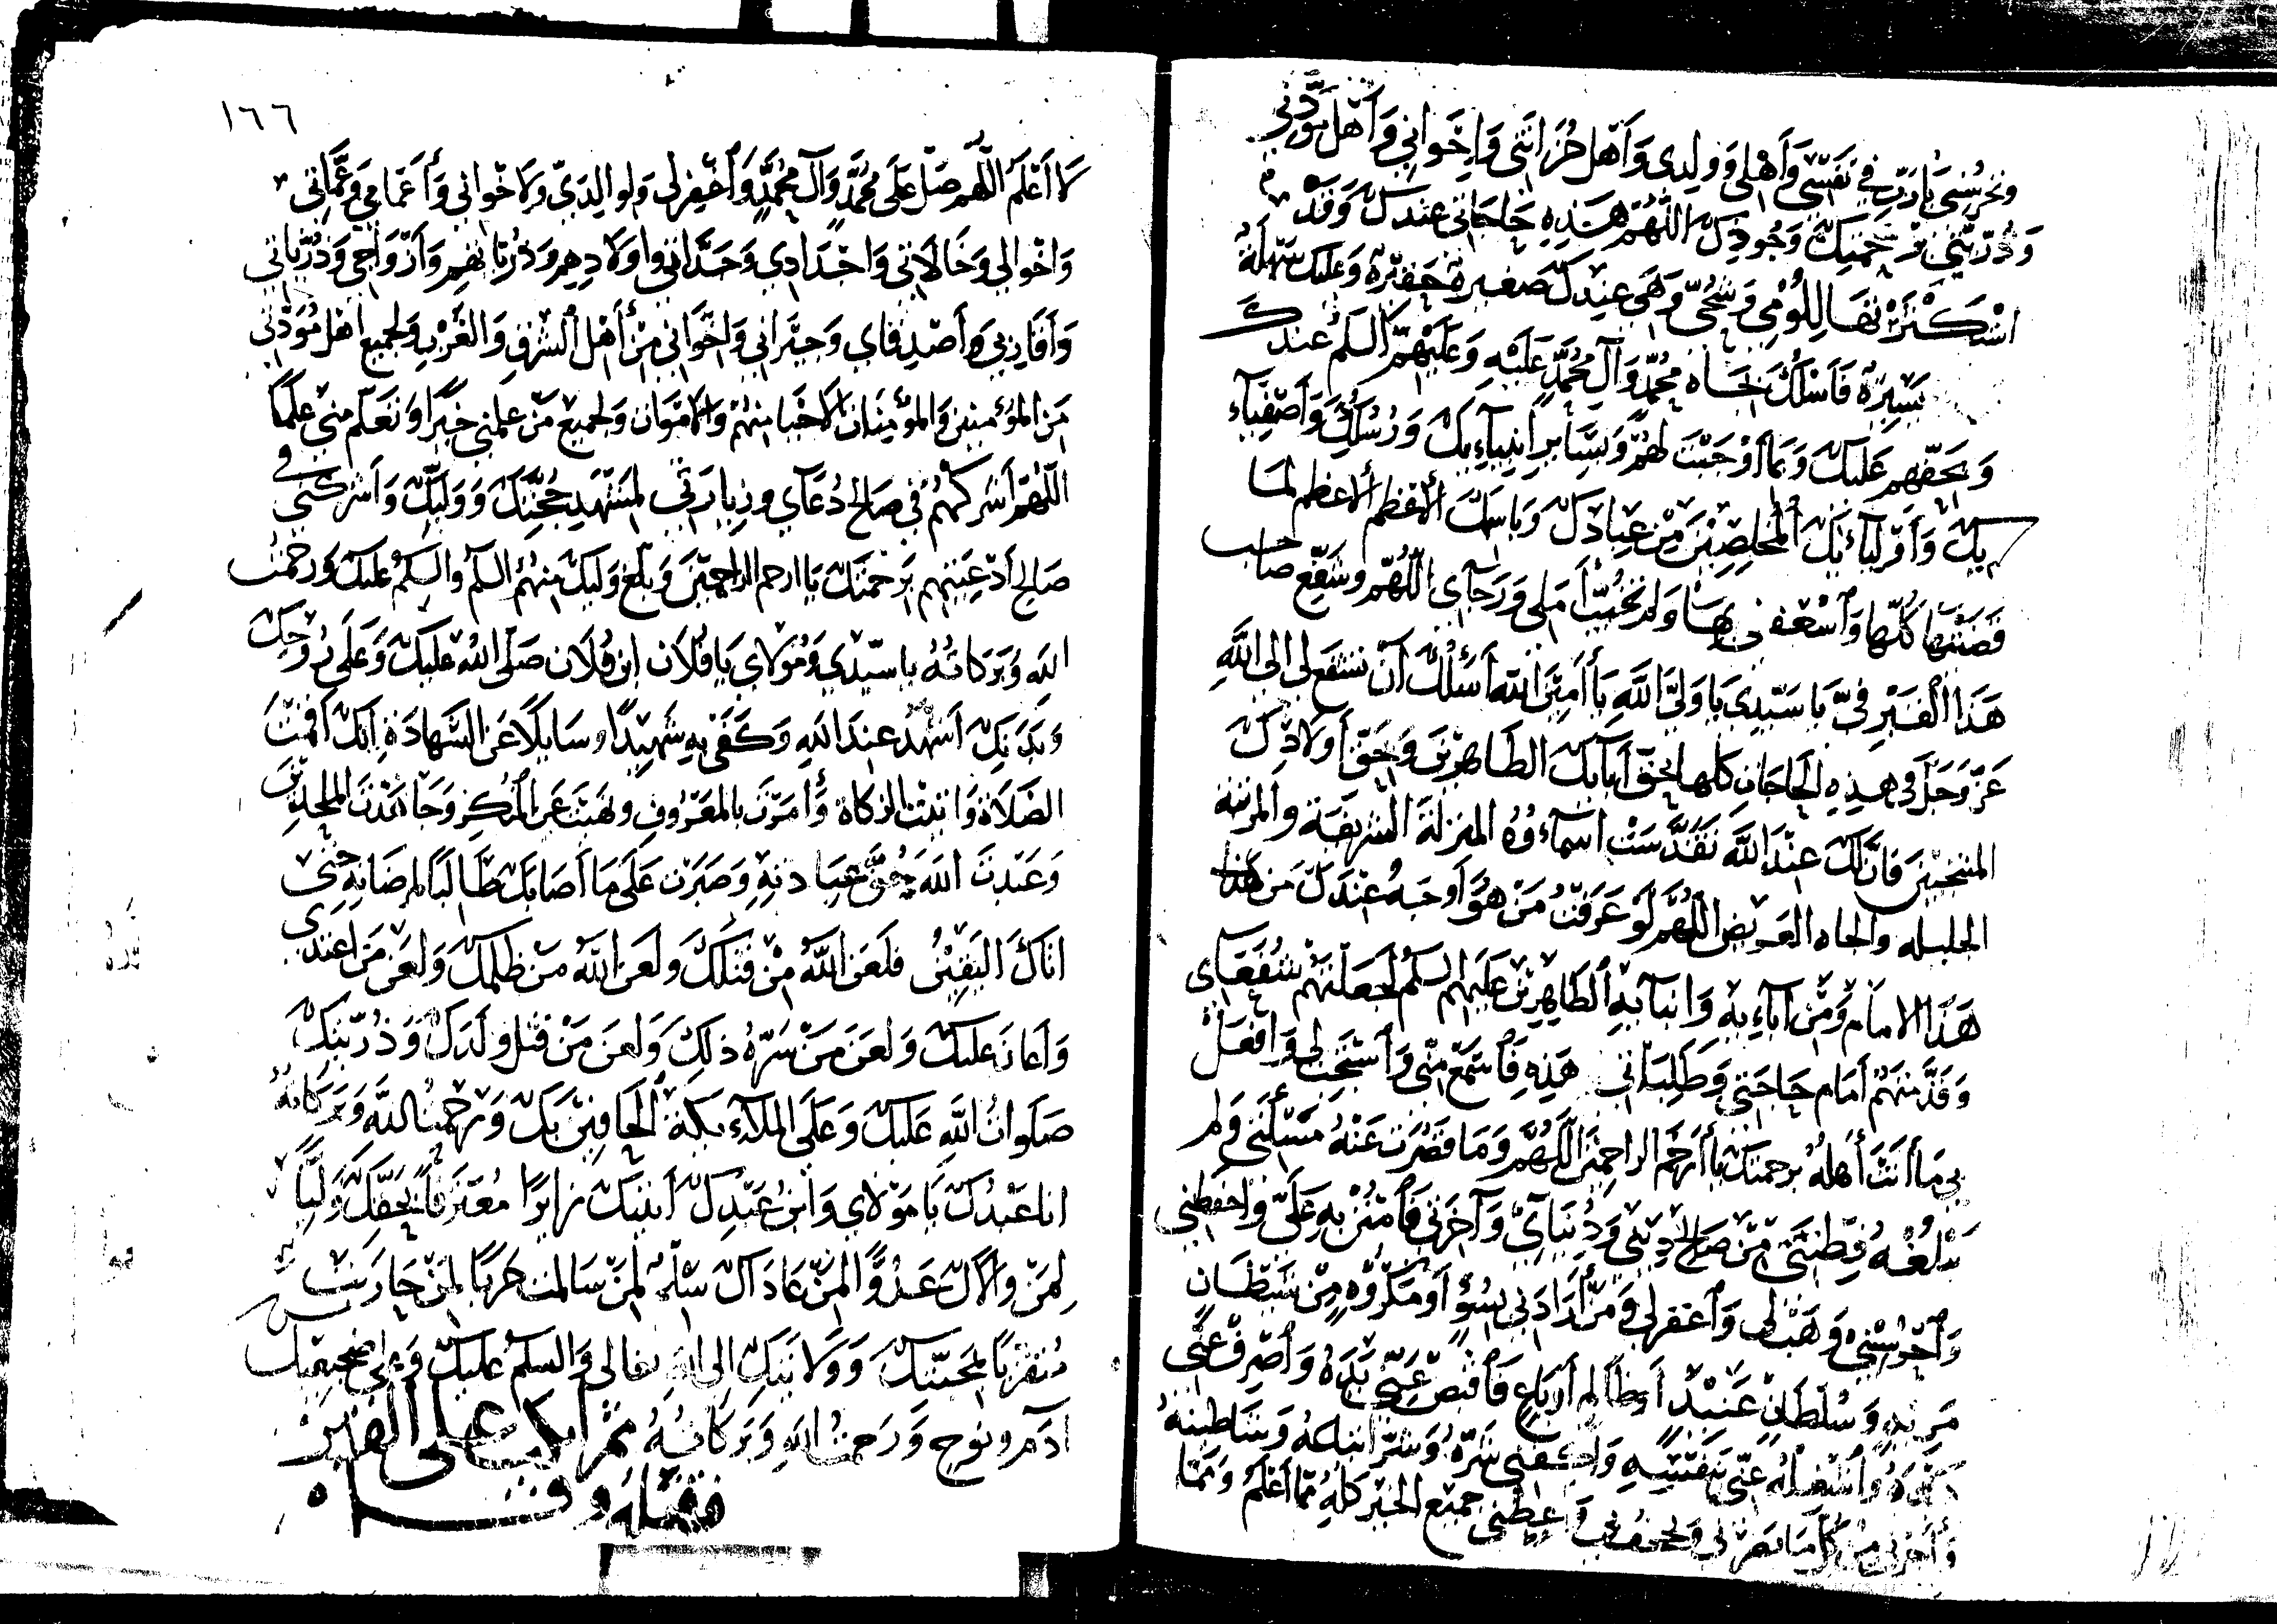 وتحرسني يا رب في نفسي وأهلي وولدي وأهل حزانتي وإخواني وأهل مودتي
وذريتي برحمتك وجودك اللهم هذه حاجاتي عندك وقد
استكثرتها للؤمي وشحي وهي عندك صغيرة حقيرة وعليك سهلة
يسيرة فأسئلك بجاه محمد وآل محمد عليه وعليهم السلم عندك
وبحقهم عليك وبما أوجبت لهم وبسائر أنبيائك ورسلك وأصفيآء
ك وأوليآءك المخلصين من عبادك وباسمك الأعظم الأعظم لما
قضيتها كلها وأسعفتني بها ولم تخيب أملي ورجآي اللهم وشفع صاحب
هذا القبر في يا سيدي يا ولي الله يا أمين الله أسئلك أن تشفع لي إلى الله
عز وجل في هذه الحاجات كلها بحق آبآئك الطاهرين وبحق أولادك
المنتجبين فإن لك عند الله تقدست أسمآءؤه المنزلة الشريفة والمرتبة
الجليلة والجاه العريض اللهم لو عرفت من هو أوجه عندك من هذا
هذا الامام ومن آبائه وأبنآئه الطاهرين عليهم السلم لجعلتهم شفعآي
وقدمتهم أمام حاجتي وطلباتي هذه فاسمع مني واستجب لي وافعل
بي ما أنت أهله برحمتك يا أرحم الراحمين اللهم وما قصرت عنه مسألتي ولم
تبلغه فطنتي من صالح ديني ودنياي وآخرتي فامنن به علي واحفظني
واحرسني وهب لي واغفر لي ومن أرادني بسوء أو مكروه من شيطان
مريد وسلطان عنيد أو ظالم أو باغ فاقبض عني يده واصرف عني
كيده واشغله عني بنفسه واكفني شره وشر أتباعه وشياطينه
وأجرني من كل ما يضرني ويجحف بي وأعطني جميع الخير كله مما أعلم ومما
١٦٦
لا أعلم اللهم صل على محمد وآل محمد واغفر لي ولوالدي ولاخواني وأعمامي وعماتي
وأخوالي وخالاتي وأجدادي وجداتي وأولادهم وذرياتهم وأزواجي وذرياتي
وأقاربي وأصدقاي وجيراني وإخواني من أهل الشرق والغرب ولجميع أهل مودتي
من المؤمنين والمؤمنات الاحيا منهم والاموات ولجميع من علمني خيرا وتعلم مني علما
اللهم أشركهم في صالح دعآي وزيارتي لمشهد حجتك ووليك وأشركني في
صالح أدعيتهم برحمتك يا ارحم الراحمين وبلغ وليك منهم السلم والسلم عليك ورحمت
الله وبركاته يا سيدي ومولاي يا فلان ابن فلان صلى الله عليك وعلى روحك
وبدنك أشهد عند الله وكفى به شهيدا وسايلا عن الشهادة انك أقمت
الصلاة وآتيت الزكاة وأمرت بالمعروف ونهيت عن المنكر وجاهدت الملحدين
وعبدت الله حق عبادته وصبرت على ما أصابك طالبا لمرضاته حتى
اتاك اليقين فلعن الله من قتلك ولعن الله من ظلمك ولعن من اعتدى
وأعان عليك ولعن من سره ذلك ولعن من قتل ولدك وذريتك
صلوات الله عليك وعلى الملآئكة الحافين بك ورحمت الله وبركاته
انا عبدك يا مولاي وابن عبدك أتيتك زايرا معترفا بحقك وليا
لمن والاك عدوا لمن عاداك سلم لمن سالمت حربا لمن حاربت
متقربا بمحبتك وولايتك إلى الله تعالى والسلم عليك وعلى ضجيعيك
آدم ونوح ورحمت الله وبركاته ثم انكب على القبر
فقبله وقل